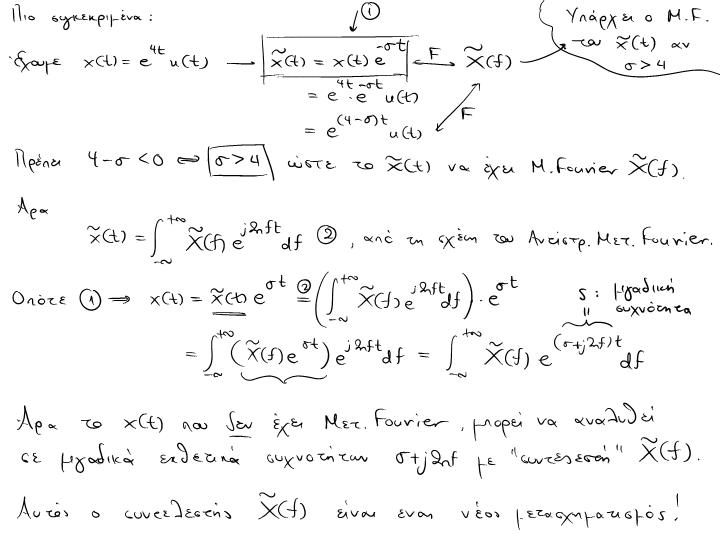 Πιο συγκεκριμένα: ①
Έχουμε x(t) = e^{4t} u(t) → x̃(t) = x(t) e^{-σt} ↔ F X̃(f) → Υπάρχει ο M.F. του x̃(t) αν σ>4
= e^{4t} · e^{-σt} u(t)
= e^{(4-σ)t} u(t) F
Πρέπει 4-σ <0 ⇔ σ>4 ώστε το x̃(t) να έχει M.Fourier X̃(f).
Άρα
x̃(t) = ∫_{-∞}^{+∞} X̃(f) e^{j2πft} df ②, από τη σχέση του Αντίστρ. Μετ. Fourier.
Οπότε ① ⇒ x(t) = x̃(t) e^{σt} ②= (∫_{-∞}^{+∞} X̃(f) e^{j2πft} df) · e^{σt} s: μιγαδική συχνότητα
= ∫_{-∞}^{+∞} (X̃(f) e^{σt}) e^{j2πft} df = ∫_{-∞}^{+∞} X̃(f) e^{(σ+j2πf)t} df
Άρα το x(t) που δεν έχει Μετ. Fourier, μπορεί να αναλυθεί
σε μιγαδικά εκθετικά συχνοτήτων σ+j2πf με "συντελεστή" X̃(f).
Αυτός ο συντελεστής X̃(f) είναι ένας νέος μετασχηματισμός!